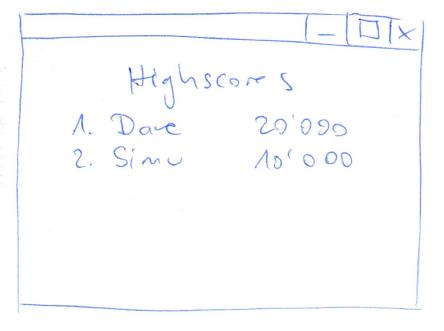 Highscores
1. Dave 20'000
2. Simu 10'000